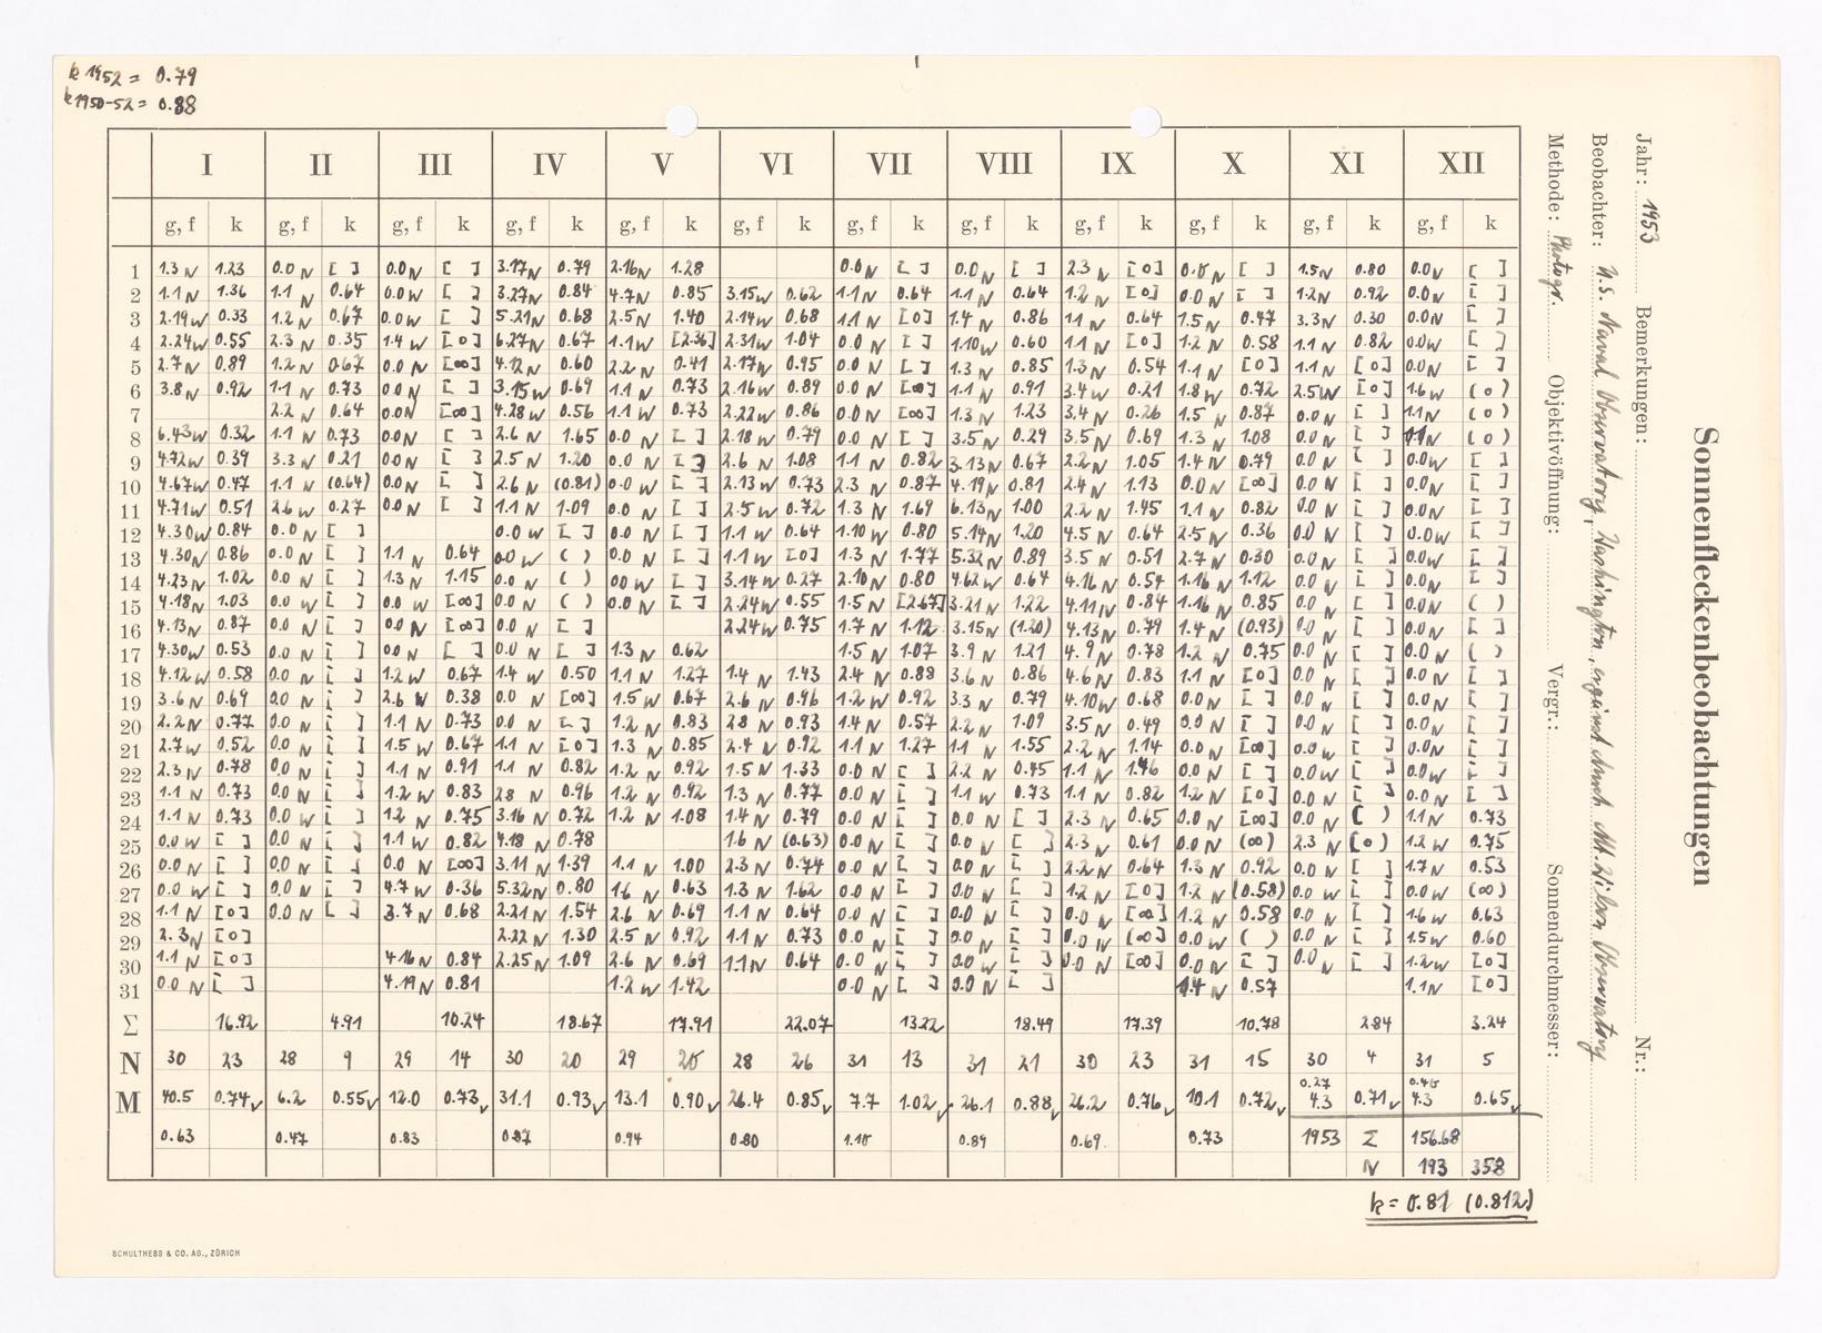 k 1952 = 0.79
k 1950-52 = 0.88
Sonnenfleckenbeobachtungen
Jahr: 1953 Bemerkungen: Nr.:
Beobachter: U.S. Naval Observatory, Washington, ergänzt durch Mt. Wilson Observatory
Methode: Photogr. Objektivöffnung: Vergr.: Sonnendurchmesser:
I II III IV V VI VII VIII IX X XI XII
g, f k g, f k g, f k g, f k g, f k g, f k g, f k g, f k g, f k g, f k g, f k g, f k
1 1.3 N 1.23 0.0 N [ ] 0.0 N [ ] 3.17 N 0.79 2.16 N 1.28 0.0 N [ ] 0.0 N [ ] 2.3 N [0] 0.0 N [ ] 1.5 N 0.80 0.0 N [ ]
2 1.1 N 1.36 1.1 N 0.64 0.0 W [ ] 3.27 N 0.84 4.7 N 0.85 3.15 W 0.62 1.1 N 0.64 1.1 N 0.64 1.2 N [0] 0.0 N [ ] 1.2 N 0.92 0.0 N [ ]
3 2.19 W 0.33 1.2 N 0.67 0.0 W [ ] 5.21 N 0.68 2.5 N 1.40 2.14 W 0.68 1.1 N [0] 1.4 N 0.86 1.1 N 0.64 1.5 N 0.47 3.3 N 0.30 0.0 N [ ]
4 2.24 W 0.55 2.3 N 0.35 1.4 W [0] 6.27 N 0.67 1.1 W [2.36] 2.31 W 1.04 0.0 N [ ] 1.10 W 0.60 1.1 N [0] 1.2 N 0.58 1.1 N 0.82 0.0 W [ ]
5 2.7 N 0.89 1.2 N 0.67 0.0 N [∞] 4.12 N 0.60 2.2 N 0.41 2.17 N 0.95 0.0 N [ ] 1.3 N 0.85 1.3 N 0.54 1.1 N [0] 1.1 N [0] 0.0 N [ ]
6 3.8 N 0.92 1.1 N 0.73 0.0 N [ ] 3.15 W 0.69 1.1 N 0.73 2.16 W 0.89 0.0 N [∞] 1.1 N 0.91 3.4 W 0.21 1.8 W 0.72 2.5 W [0] 1.6 W (0)
7 2.2 N 0.64 0.0 N [∞] 4.28 W 0.56 1.1 W 0.73 2.22 W 0.86 0.0 N [∞] 1.3 N 1.23 3.4 N 0.26 1.5 N 0.87 0.0 N [ ] 1.1 N (0)
8 6.43 W 0.32 1.1 N 0.73 0.0 N [ ] 2.6 N 1.65 0.0 N [ ] 2.18 W 0.79 0.0 N [ ] 3.5 N 0.29 3.5 N 0.69 1.3 N 1.08 0.0 N [ ] 1.1 N (0)
9 4.72 W 0.39 3.3 N 0.21 0.0 N [ ] 2.5 N 1.20 0.0 N [ ] 2.6 N 1.08 1.1 N 0.82 3.13 N 0.67 2.2 N 1.05 1.4 N 0.79 0.0 N [ ] 0.0 W [ ]
10 4.67 W 0.47 1.1 N (0.64) 0.0 N [ ] 2.6 N (0.81) 0.0 W [ ] 2.13 W 0.73 2.3 N 0.87 4.19 N 0.81 2.4 N 1.13 0.0 N [∞] 0.0 N [ ] 0.0 N [ ]
11 4.71 W 0.51 2.6 W 0.27 0.0 N [ ] 1.1 N 1.09 0.0 N [ ] 2.5 W 0.72 1.3 N 1.69 6.13 N 1.00 2.2 N 1.45 1.1 N 0.82 0.0 N [ ] 0.0 N [ ]
12 4.30 W 0.84 0.0 N [ ] 0.0 W [ ] 0.0 N [ ] 1.1 W 0.64 1.10 W 0.80 5.14 N 1.20 4.5 N 0.64 2.5 N 0.36 0.0 N [ ] 0.0 W [ ]
13 4.30 N 0.86 0.0 N [ ] 1.1 N 0.64 0.0 W ( ) 0.0 N [ ] 1.1 W [0] 1.3 N 1.77 5.32 N 0.89 3.5 N 0.51 2.7 N 0.30 0.0 N [ ] 0.0 W [ ]
14 4.23 N 1.02 0.0 N [ ] 1.3 N 1.15 0.0 N ( ) 0.0 W [ ] 3.14 W 0.27 2.10 N 0.80 4.62 W 0.64 4.16 N 0.54 1.16 N 1.12 0.0 N [ ] 0.0 N [ ]
15 4.18 N 1.03 0.0 W [ ] 0.0 W [∞] 0.0 N ( ) 0.0 N [ ] 2.24 W 0.55 1.5 N [2.67] 3.21 N 1.22 4.11 N 0.84 1.16 N 0.85 0.0 N [ ] 0.0 N ( )
16 4.13 N 0.87 0.0 N [ ] 0.0 N [∞] 0.0 N [ ] 2.24 W 0.75 1.7 N 1.12 3.15 N (1.20) 4.13 N 0.79 1.4 N (0.93) 0.0 N [ ] 0.0 N [ ]
17 4.30 W 0.53 0.0 N [ ] 0.0 N [ ] 0.0 N [ ] 1.3 N 0.62 1.5 N 1.07 3.9 N 1.21 4.9 N 0.78 1.2 N 0.75 0.0 N [ ] 0.0 N ( )
18 4.12 W 0.58 0.0 N [ ] 1.2 W 0.67 1.4 W 0.50 1.1 N 1.27 1.4 N 1.43 2.4 N 0.88 3.6 N 0.86 4.6 N 0.83 1.1 N [0] 0.0 N [ ] 0.0 N [ ]
19 3.6 N 0.69 0.0 N [ ] 2.6 W 0.38 0.0 N [∞] 1.5 W 0.67 2.6 N 0.96 1.2 W 0.92 3.3 N 0.79 4.10 W 0.68 0.0 N [ ] 0.0 N [ ] 0.0 N [ ]
20 2.2 N 0.77 0.0 N [ ] 1.1 N 0.73 0.0 N [ ] 1.2 N 0.83 2.8 N 0.93 1.4 N 0.57 2.2 N 1.09 3.5 N 0.49 0.0 N [ ] 0.0 N [ ] 0.0 N [ ]
21 2.7 W 0.52 0.0 N [ ] 1.5 W 0.67 1.1 N [0] 1.3 N 0.85 2.4 N 0.92 1.1 N 1.27 1.1 N 1.55 2.2 N 1.14 0.0 N [∞] 0.0 W [ ] 0.0 N [ ]
22 2.3 N 0.78 0.0 N [ ] 1.1 N 0.91 1.1 N 0.82 1.2 N 0.92 1.5 N 1.33 0.0 N [ ] 2.2 N 0.45 1.1 N 1.46 0.0 N [ ] 0.0 W [ ] 0.0 W [ ]
23 1.1 N 0.73 0.0 N [ ] 1.2 W 0.83 2.8 N 0.96 1.2 N 0.92 1.3 N 0.77 0.0 N [ ] 1.1 W 0.73 1.1 N 0.82 1.2 N [0] 0.0 N [ ] 0.0 N [ ]
24 1.1 N 0.73 0.0 W [ ] 1.2 N 0.75 3.16 N 0.72 1.2 N 1.08 1.4 N 0.79 0.0 N [ ] 0.0 N [ ] 2.3 N 0.65 0.0 N [∞] 0.0 N ( ) 1.1 N 0.73
25 0.0 W [ ] 0.0 N [ ] 1.1 W 0.82 4.18 N 0.78 1.6 N (0.63) 0.0 N [ ] 0.0 N [ ] 2.3 N 0.61 0.0 N (∞) 2.3 N [0) 1.2 W 0.75
26 0.0 N [ ] 0.0 N [ ] 0.0 N [∞] 3.11 N 1.39 1.1 N 1.00 2.3 N 0.74 0.0 N [ ] 0.0 N [ ] 2.2 N 0.64 1.3 N 0.92 0.0 N [ ] 1.7 N 0.53
27 0.0 W [ ] 0.0 N [ ] 4.7 W 0.36 5.32 N 0.80 1.6 N 0.63 1.3 N 1.62 0.0 N [ ] 0.0 N [ ] 1.2 N [0] 1.2 N (0.58) 0.0 W [ ] 0.0 W (∞)
28 1.1 N [0] 0.0 N [ ] 3.7 N 0.68 2.21 N 1.54 2.6 N 0.69 1.1 N 0.64 0.0 N [ ] 0.0 N [ ] 0.0 N [∞] 1.2 N 0.58 0.0 N [ ] 1.6 W 0.63
29 2.3 N [0] 2.22 N 1.30 2.5 N 0.92 1.1 N 0.73 0.0 N [ ] 0.0 N [ ] 0.0 N [∞] 0.0 W ( ) 0.0 N [ ] 1.5 W 0.60
30 1.1 N [0] 4.16 N 0.84 2.25 N 1.09 2.6 N 0.69 1.1 N 0.64 0.0 N [ ] 0.0 W [ ] 0.0 N [∞] 0.0 N [ ] 0.0 N [ ] 1.2 W [0]
31 0.0 N [ ] 4.19 N 0.81 1.2 W 1.42 0.0 N [ ] 0.0 N [ ] 1.4 N 0.57 1.1 N [0]
Σ 16.92 4.91 10.24 18.67 17.91 22.07 13.22 18.49 17.39 10.78 2.84 3.24
N 30 23 28 9 29 14 30 20 29 20 28 26 31 13 31 21 30 23 31 15 30 4 31 5
0.27 0.40
M 40.5 0.74 6.2 0.55 12.0 0.73 31.1 0.93 13.1 0.90 26.4 0.85 7.7 1.02 26.1 0.88 26.2 0.76 10.1 0.72 4.3 0.71 4.3 0.65
0.63 0.47 0.83 0.87 0.94 0.80 1.10 0.89 0.69 0.73 1953 Σ 156.68
N 193 358
k = 0.81 (0.812)
SCHULTHESS & CO. AG., ZÜRICH